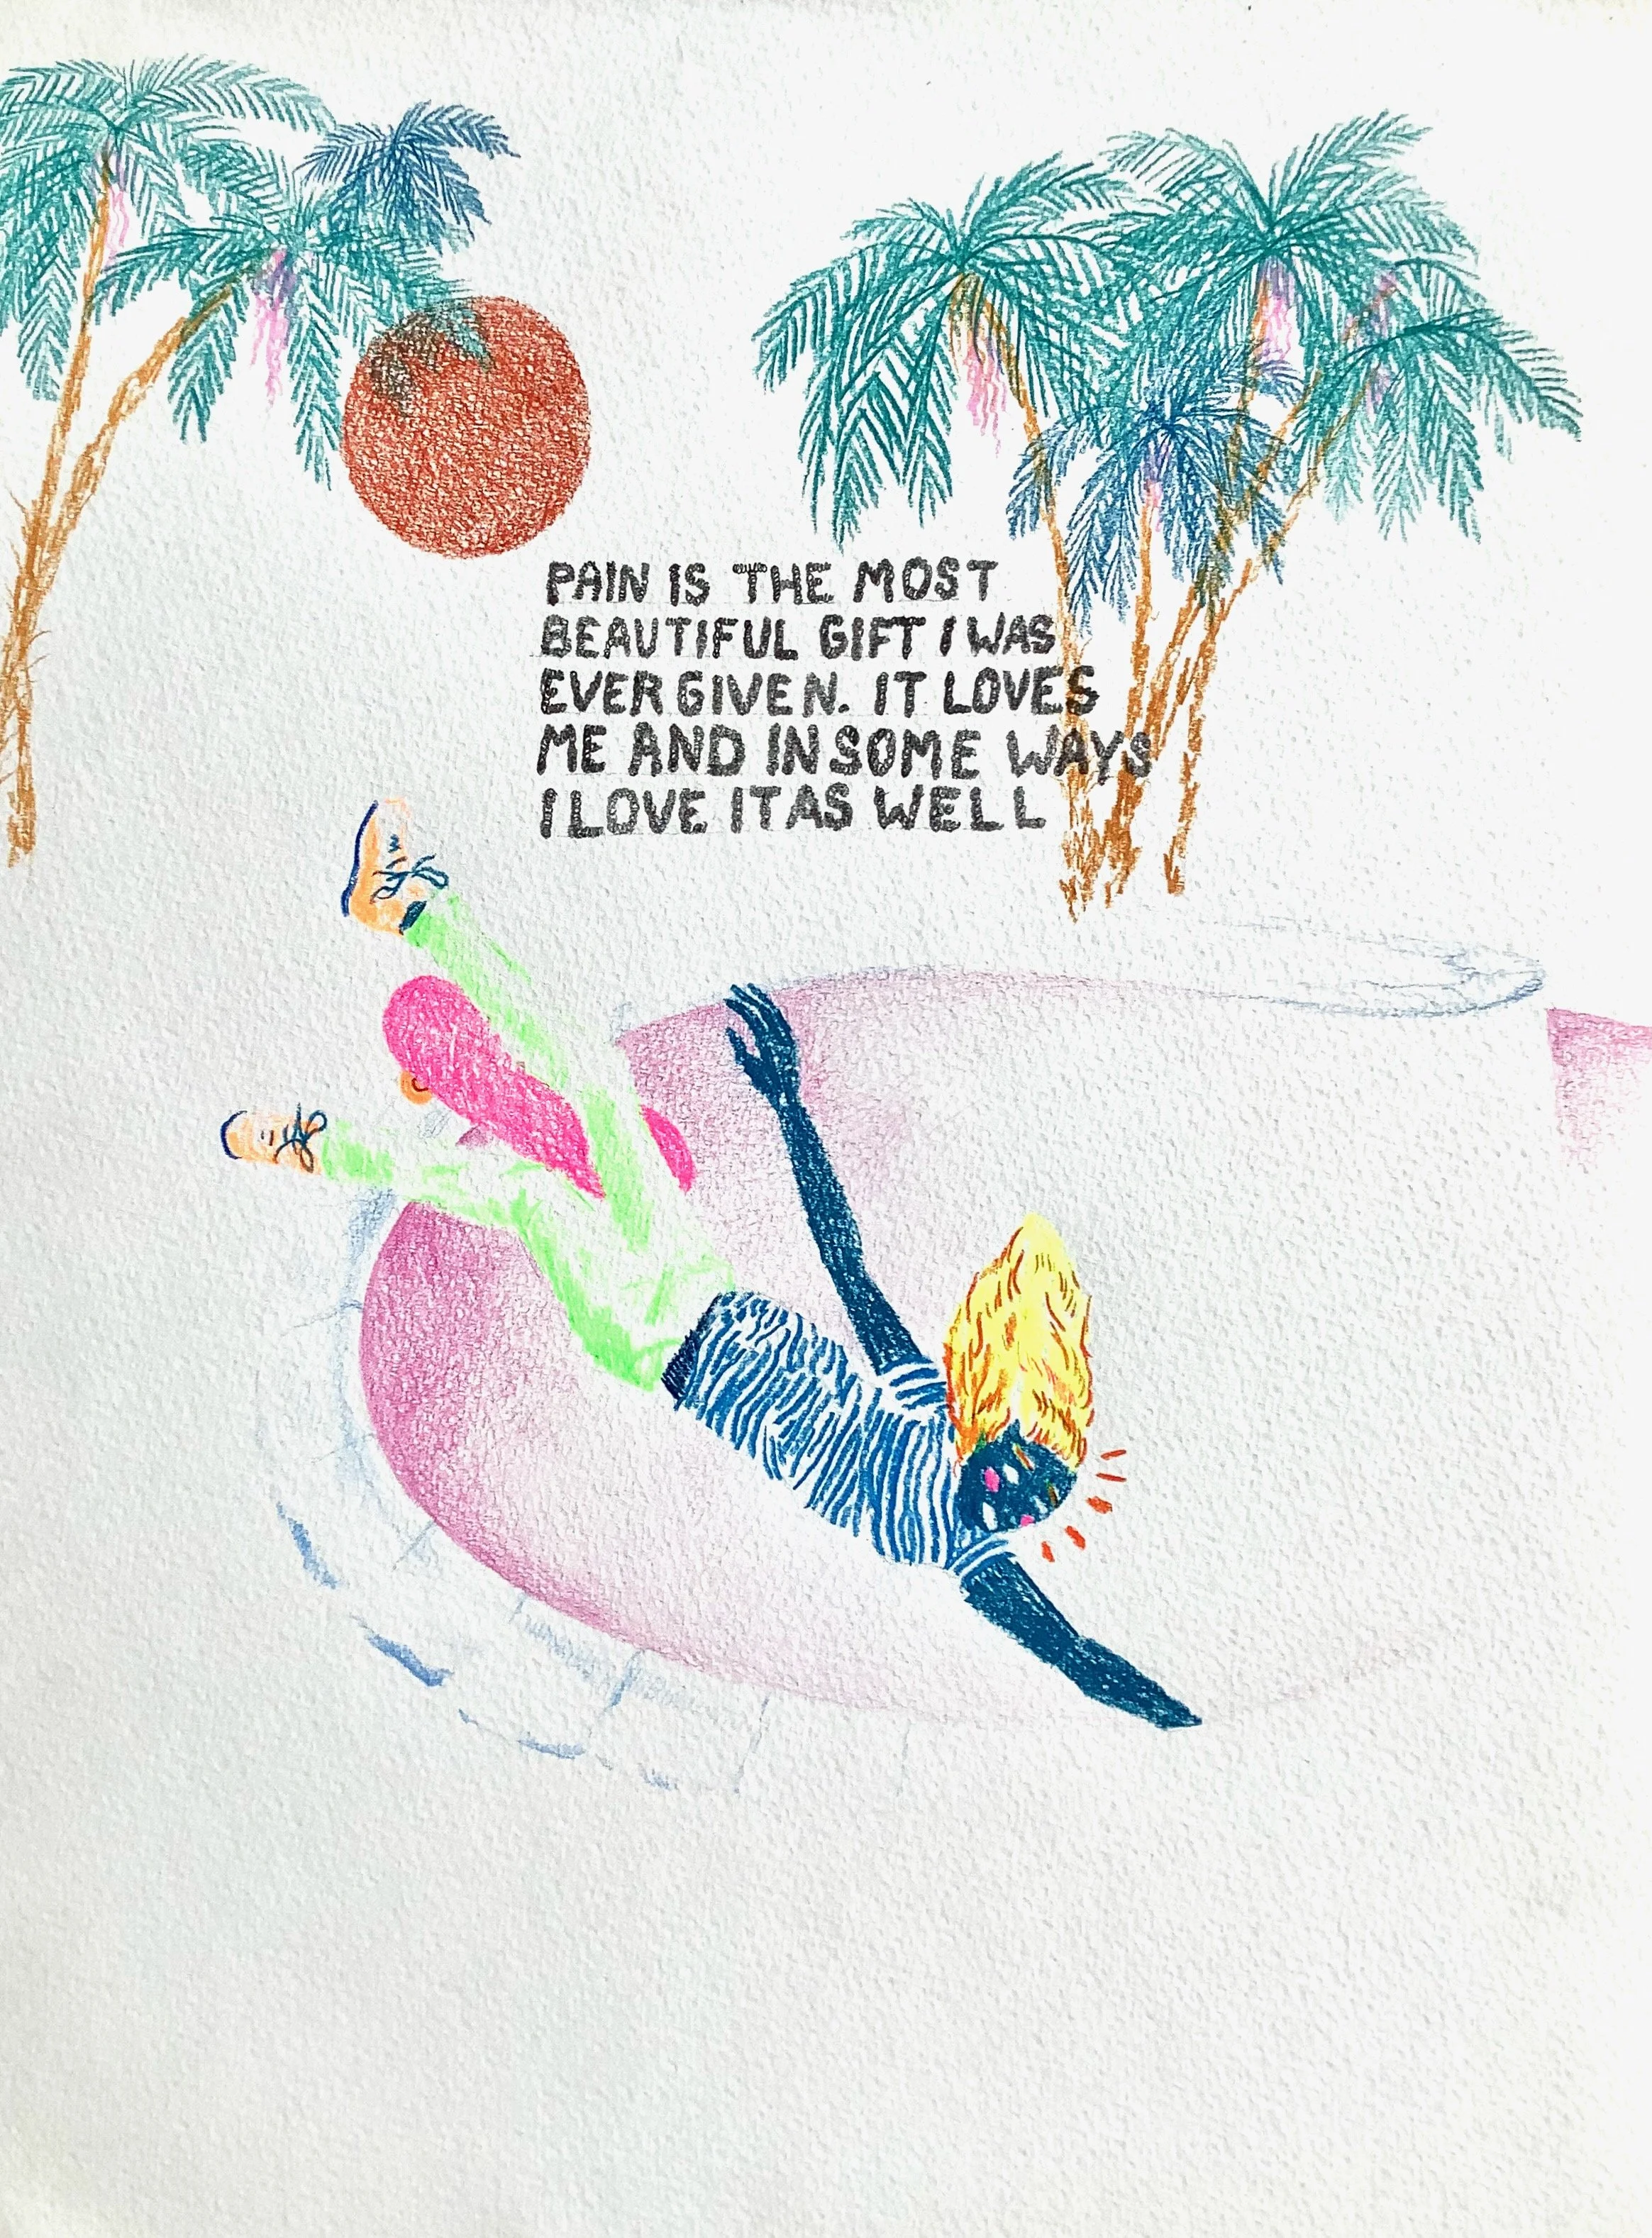 PAIN IS THE MOST
BEAUTIFUL GIFT I WAS
EVER GIVEN. IT LOVES
ME AND IN SOME WAYS
I LOVE IT AS WELL